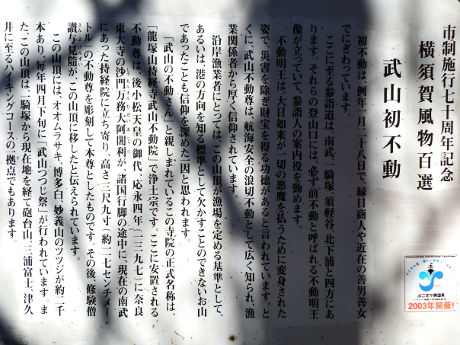 市制施行七十周年記念
横須賀風物百選
武山初不動
初不動は例年一月二十八日で、縁日商人や近在の善男善女
でにぎわっています。
ここに至る参詣道は、南武、一騎塚、須軽谷、北下浦と四方にあ
ります。それらの登山口には、必ず前不動と呼ばれる不動明王
像が立っていて、参詣人の案内役を勤めます。
不動明王は、大日如来が一切の悪魔を払うために変身された
姿で、災害を除き財宝を得る功徳があると言われています。と
くに、武山不動尊は、航海安全の浪切不動として広く知られ、漁
業関係者から厚く信仰されています。
沿岸漁業者にとっては、この山頂が漁場を定める基準として、
あるいは、港の方向を知る標準として欠かすことのできないお山
であったことも信仰を深めた一因と思われます。
「武山の不動さん」と親しまれているこの寺院の正式名称は、
「龍塚山持経寺武山不動院」で浄土宗です。ここに安置される
不動尊は、後小松天皇の御代、応永四年(一三九七)に奈良
東大寺の沙門万務大阿闍利が諸国行脚の途中に、現在の南武
にあった持経院に立ち寄り、高さ三尺九寸(約一一七センチメー
トル)の不動尊を彫刻して本尊としたものです。その後、修験僧
讃与見隆がこの山頂に移したと伝えられています。
この山頂には、オオムラサキ、博多白、妙義山のツツジが約二千
本あり、毎年四月下旬に"武山つつじ祭"が行われています。ま
た、この山頂は、一騎塚から現在地を経て砲台山、三浦富士、津久
井に至るハイキングコースの一拠点でもあります。
2003年開催!